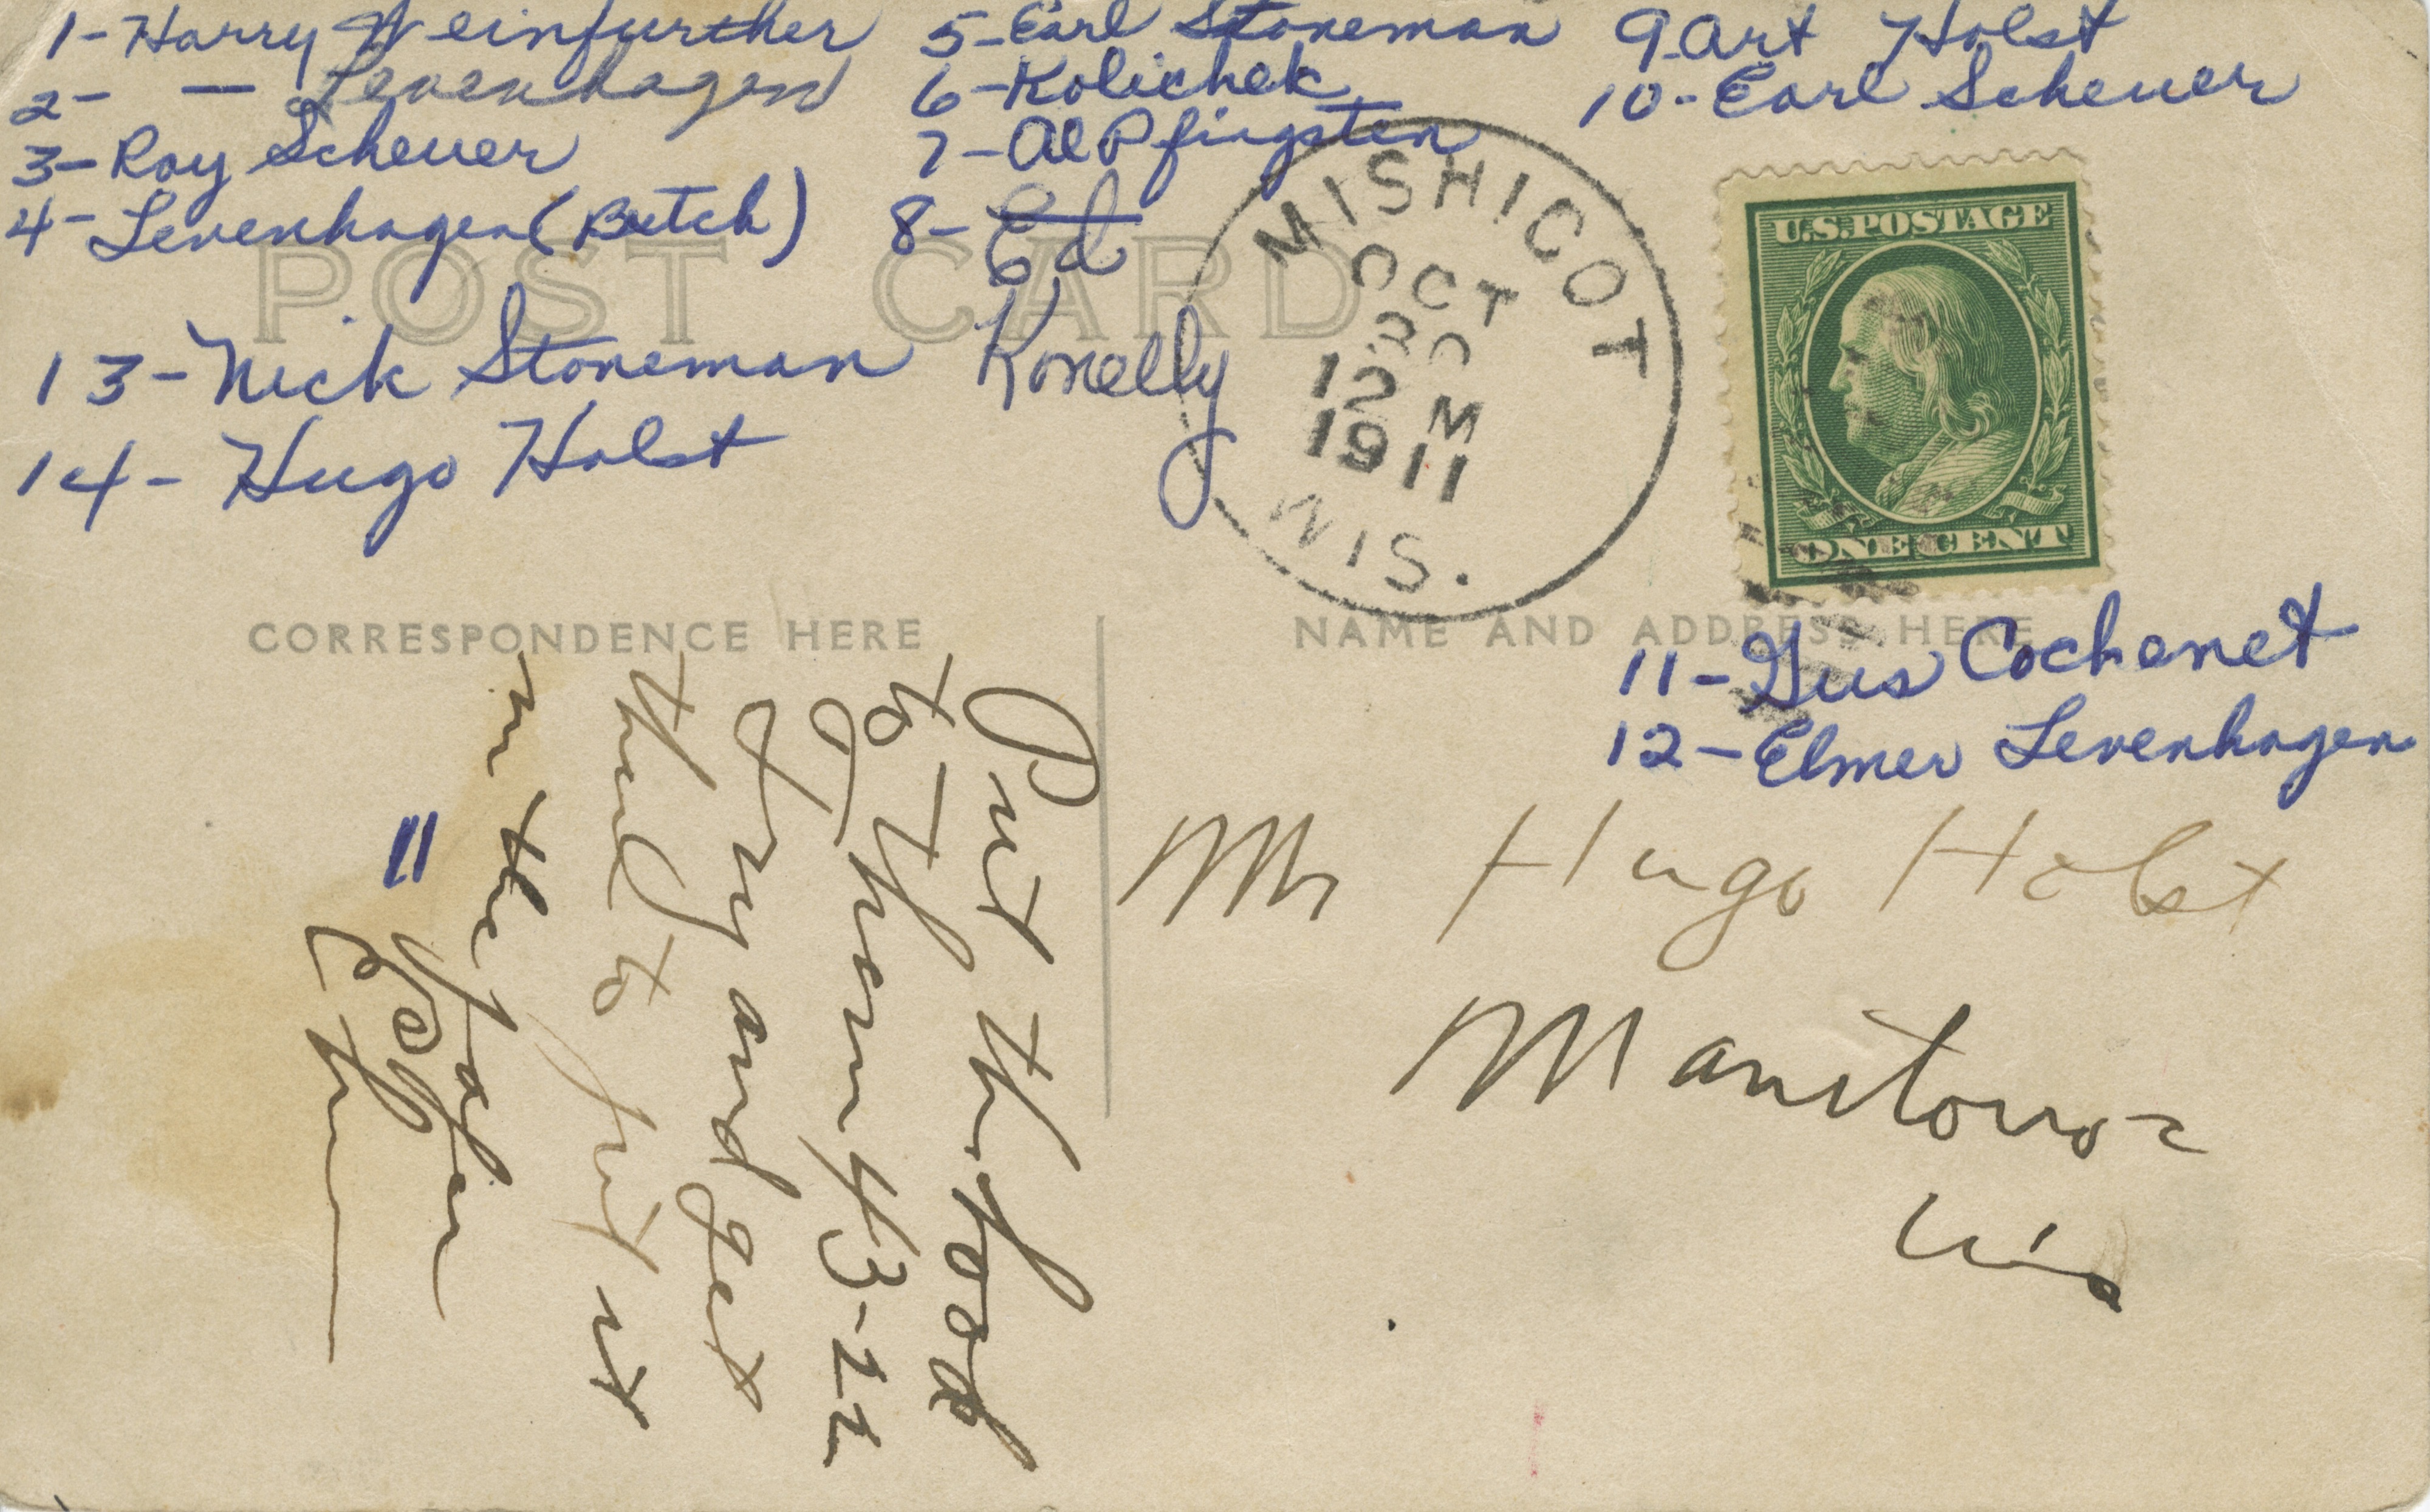 1- Harry Weinfurther
2- — Levenhagen
3- Roy Scheuer
4- Levenhagen (Butch)
5- Earl Stoneman
6- Kolichek
7- Al Pfingsten
8- Ed
Konelly
9. Art Holst
10- Earl Scheuer
13- Nick Stoneman
14- Hugo Holst
POST CARD
MISHICOT
OCT
30
12 M
1911
WIS.
U.S. POSTAGE
ONE CENT
CORRESPONDENCE HERE
NAME AND ADDRESS HERE
11- Gus Cochenet
12- Elmer Levenhagen
Mr Hugo Holst
Manitowoc
Wis
Put the food
to them 43-22
Try and get
to put it
in the paper
"